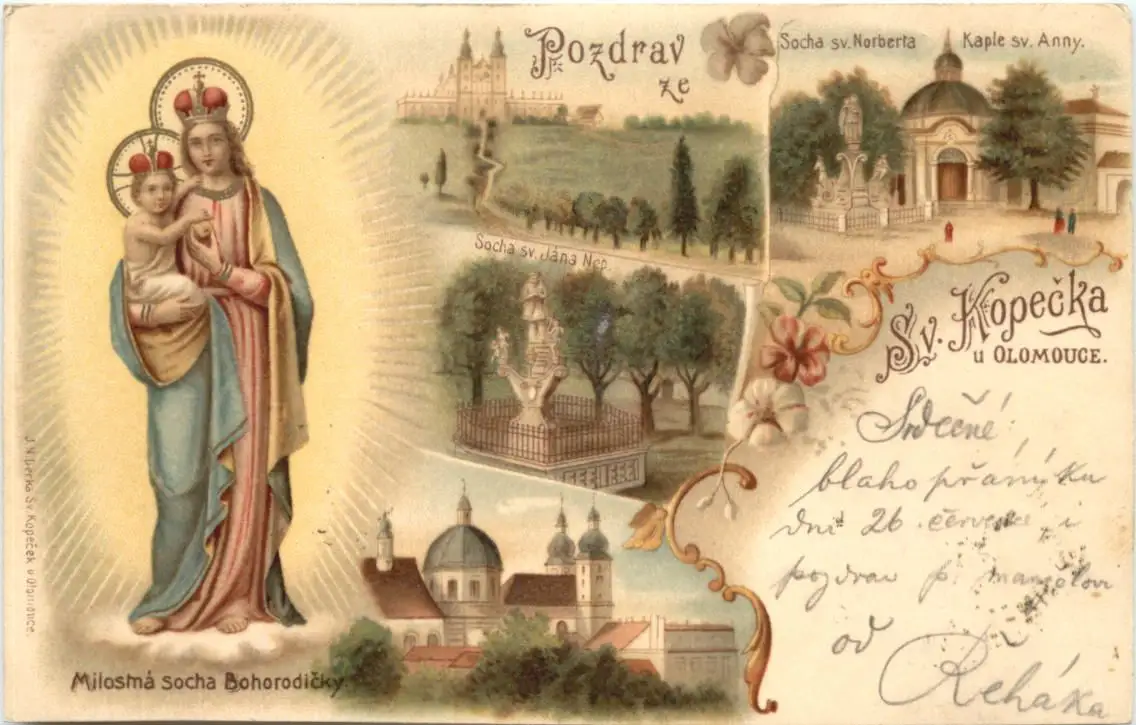 Pozdrav
ze
Socha sv. Norberta
Kaple sv. Anny.
Socha sv. Jána Nep.
Sv. Kopečka
u OLOMOUCE.
Srdečné
blahopřání ku
dni 26. července i
pozdrav p. manželovi
od
Řeháka
Milostná socha Bohorodičky.
Sv. Kopeček u Olomouce.